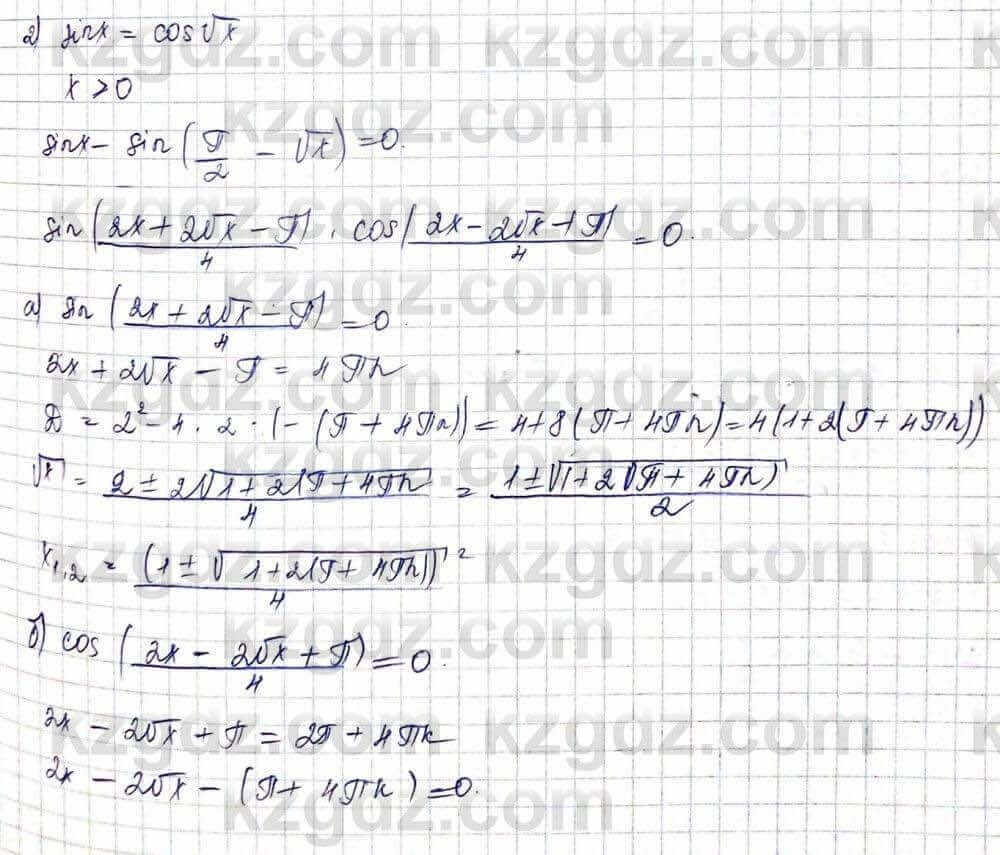 2) sin x = cos √x
x > 0
sin x - sin (π/2 - √x) = 0.
sin (2x + 2√x - π)/4 · cos (2x - 2√x + π)/4 = 0.
а) sin (2x + 2√x - π)/4 = 0.
2x + 2√x - π = 4πn
D = 2² - 4 · 2 · (-(π + 4πn)) = 4 + 8(π + 4πn) = 4(1 + 2(π + 4πn))
√x = (2 ± 2√(1 + 2(π + 4πn))/4 = (1 ± √(1 + 2(π + 4πn))/2
x₁,₂ = (1 ± √(1 + 2(π + 4πn)))²/4
б) cos (2x - 2√x + π)/4 = 0.
2x - 2√x + π = 2π + 4πk
2x - 2√x - (π + 4πk) = 0.
kzgdz.com